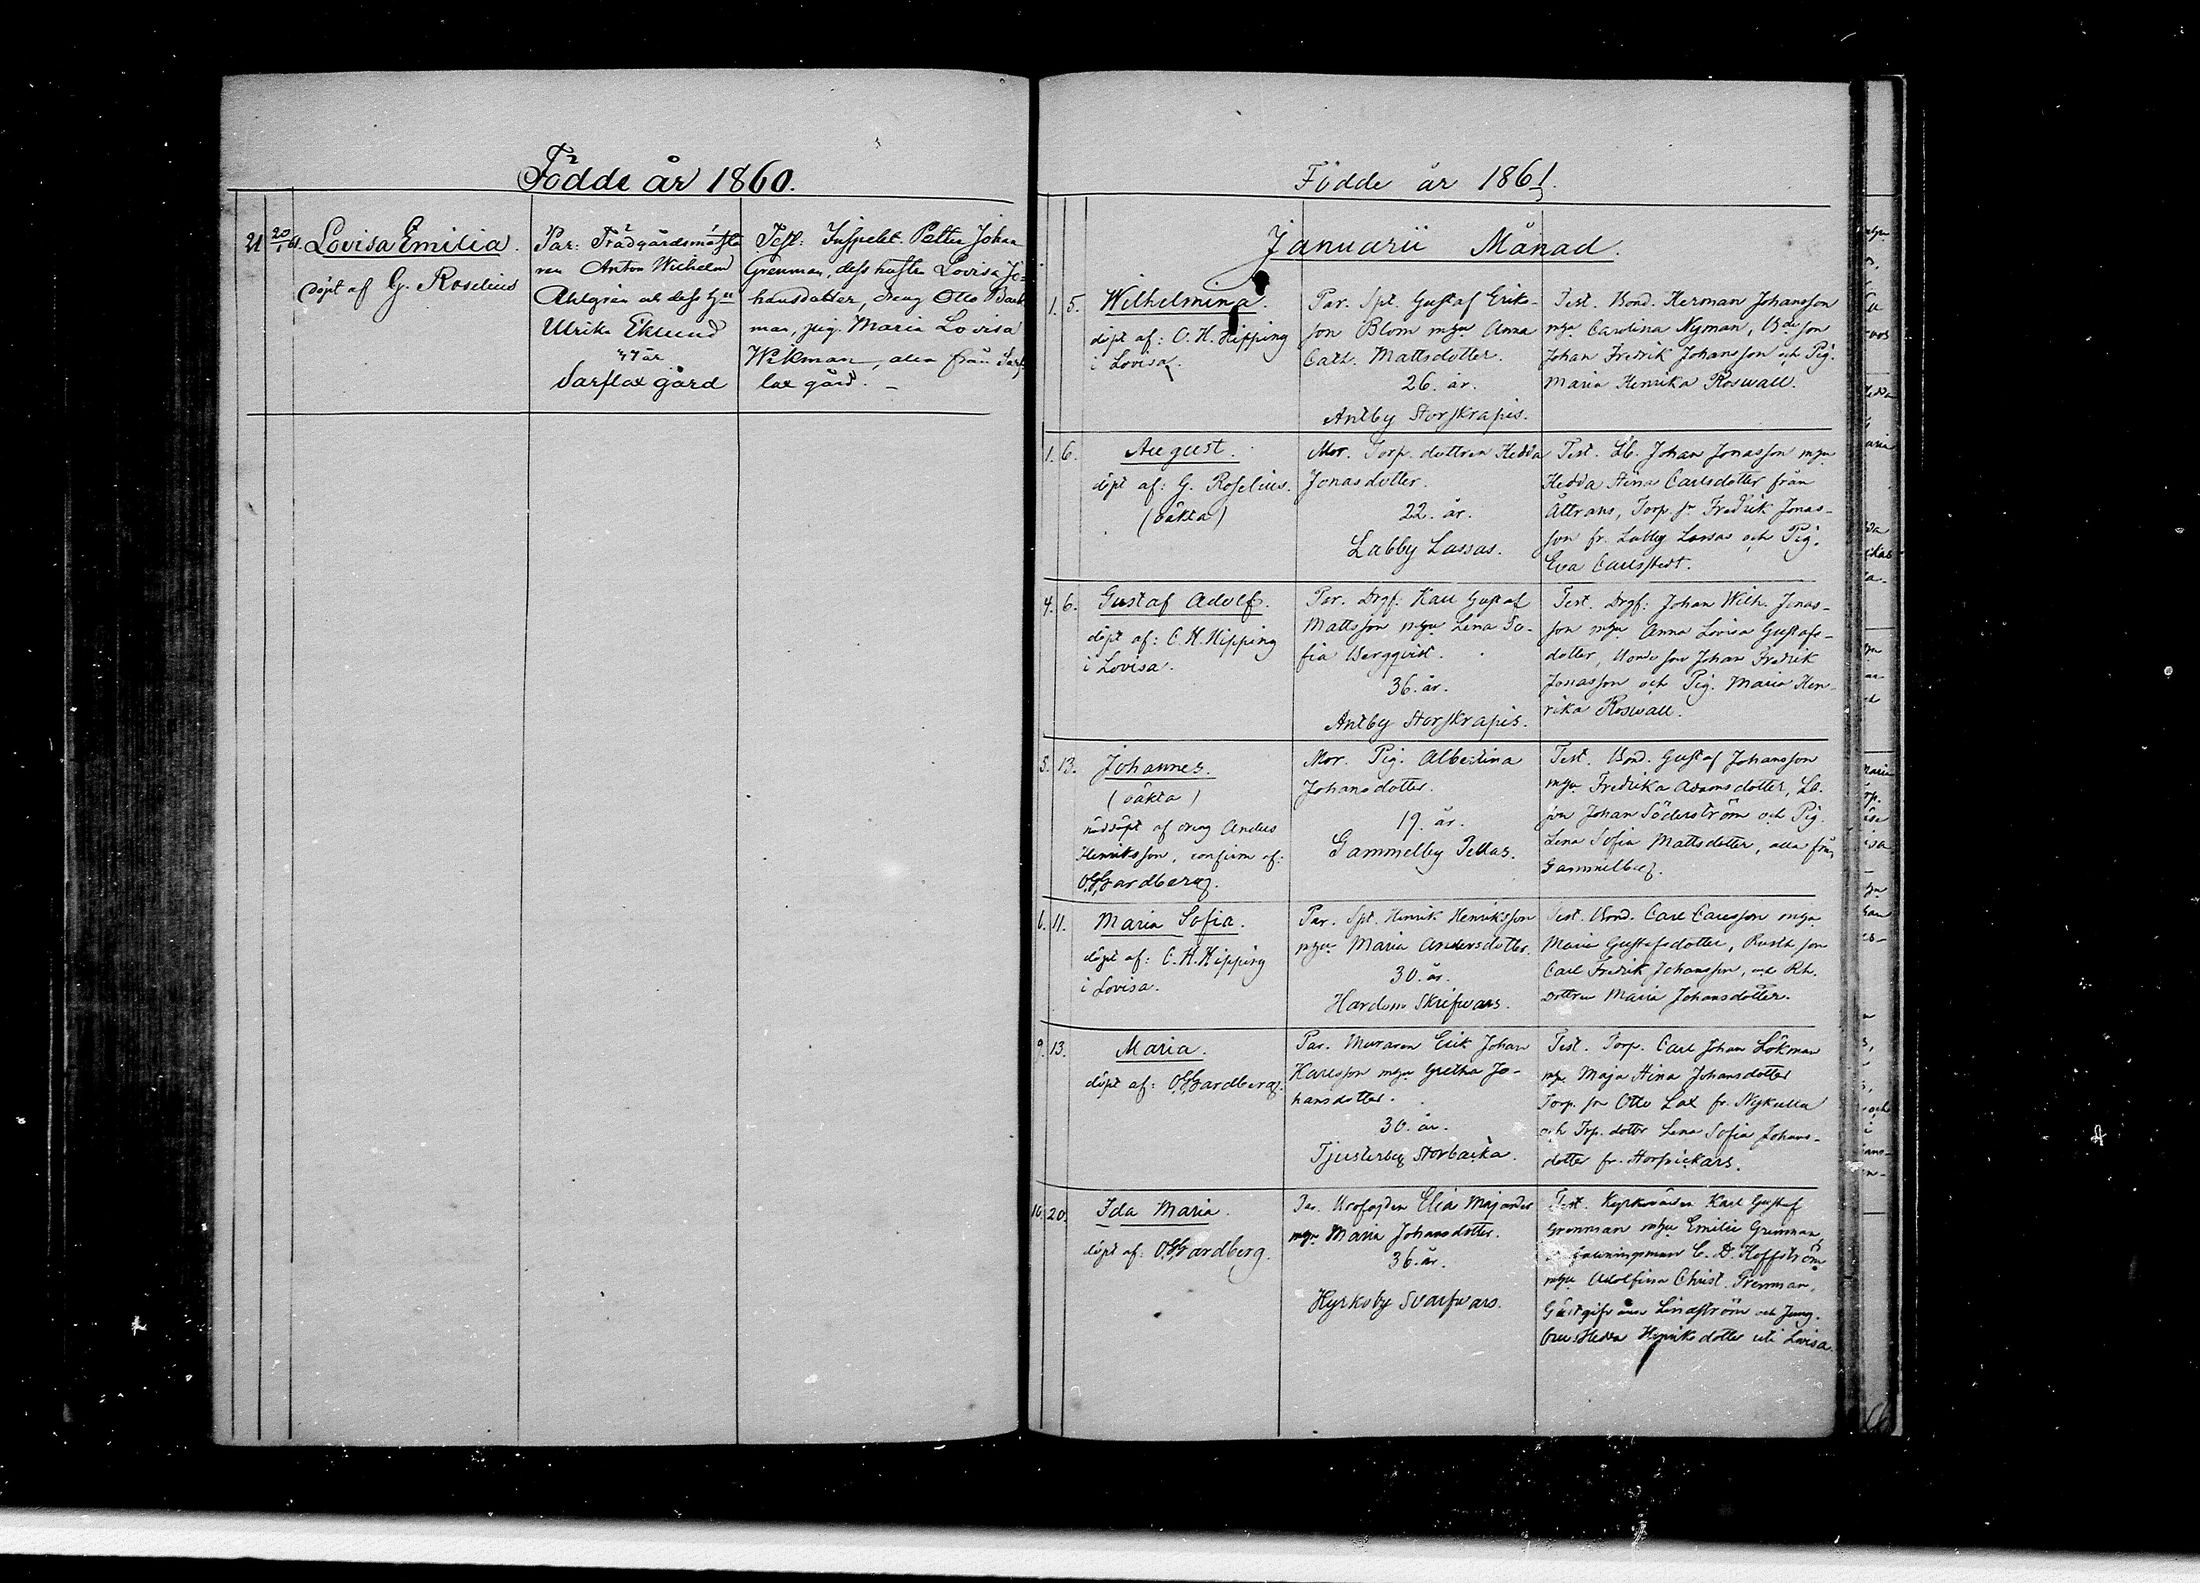 Födde år 1860.
21 20/1 61. Lovisa Emilia.
döpt af G. Roselius
Par: Trädgårdsmästa
ren Anton Wilhelm
Ahlgrén och dess hu
Ulrika Eklund
44 år
Sarflax gård
Test: Inspekt. Petter Johan
Grenman, dess hustru Lovisa Jo-
hansdotter, dreng Otto Back
man, pig. Maria Lovisa
Wekman, alla från Sarf
lax gård.
Födde år 1861.
Januarii Månad.
1. 5. Wilhelmina.
döpt af: C. H. Hipping
i Lovisa.
Par. Spt. Gustaf Eriks-
son Blom mhu Anna
Cath. Mattsdotter.
26. år.
Antby Storskrapis.
Test. Bond. Herman Johansson
mhu Carolina Nyman, Bde son
Johan Fredrik Johansson och Pig.
Maria Henrika Roswall.
1. 6. August.
döpt af: G. Roselius.
(oäkta)
Mor. Torp. dottren Hedda
Jonasdotter.
22. år.
Labby Lassas.
Test. Johan Jonasson mhu
Hedda Stina Carlsdotter från
Torp. sn Fredrik Jonas-
son fr. Labby Lassas och Pig.
Eva Carlsstedt.
4. 6. Gustaf Adolf.
döpt af: C. H. Hipping
i Lovisa.
Par. Drgf. Karl Gustaf
Mattsson mhu Lena So-
fia Bergqvist.
36. år.
Antby Storskrapis.
Test. Drgf: Johan Wilh. Jonas-
son mhu Anna Lovisa Gustafs-
dotter, Bonde son Johan Fredrik
Jonasson och Pig. Maria Hen-
rika Roswall.
5. 13. Johannes.
(oäkta)
nöddöpt af dreng Anders
Henriksson, confirm af:
O. G. Gardberg.
Mor. Pig. Albertina
Johansdotter.
19. år.
Gammelby Pellas.
Test. Bond. Gustaf Johansson
mhu Fredrika Adamsdotter,
son Johan Söderström och Pig.
Lena Sofia Mattsdotter, alla från
Gammelby.
6. 11. Maria Sofia.
döpt af: C. H. Hipping
i Lovisa.
Par. Spt. Henrik Henriksson
mhu Maria Andersdotter.
30. år.
Hardom Skrifvars.
Test. Bond. Carl Carlsson mhu
Maria Gustafsdotter, son
Carl Fredrik Johansson, och Rh.
dottren Maria Johansdotter.
9. 13. Maria.
döpt af: O. G. Gardberg.
Par. Muraren Erik Johan
Karlsson mhu Gretha Jo-
hansdotter.
30. år.
Tjusterby Storbacka.
Test. Torp. Carl Johan Lökman
mhu Maja Stina Johansdotter
Torp. sn Otto Lax fr. Nykulla
och Trp. dottr Lena Sofia Johans-
dotter fr. Storpickars.
10. 20. Ida Maria.
döpt af: O. G. Gardberg.
Par. Elia Majander
mhu Maria Johansdotter.
36. år.
Kyrkoby Svarfvars.
Test. Kyrkvärden Karl Gustaf
Grenman mhu Emilie Grenman,
C. D. Hoffström
mhu Adolfina Christ. Grenman,
Gästgifvaren Lindström och Jung-
frun Hedda Henriksdotter uti Lovisa.